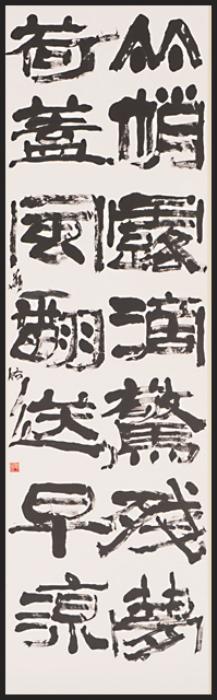 竹梢露滴驚残夢
荷蓋風翻送早涼